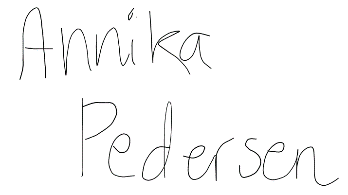 Annika
Pedersen